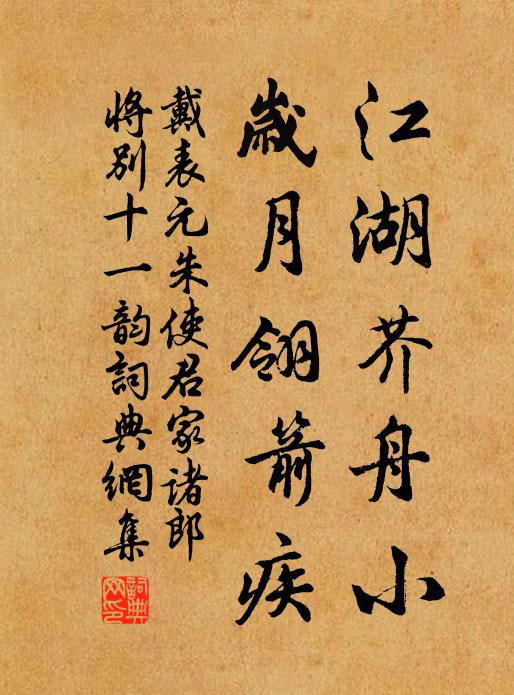 江湖芥舟小
歲月翎箭疾
戴表元朱使君家诸郎
将别十一韵詞典網集
詞典網印